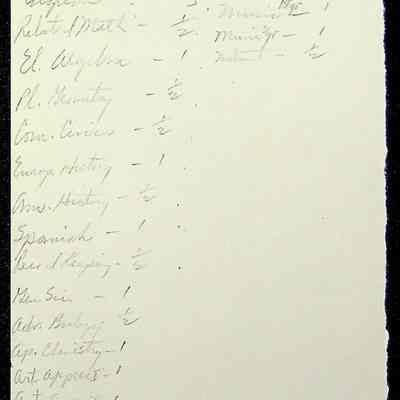 Related Math - 1/2
El. Algebra - 1
Pl. Geometry - 1/2
Com. Civics - 1/2
Europ History - 1
Am. History - 1/2
Spanish - 1
Record Keeping - 1/2
Gen Sci - 1
Adv. Biology 1/2
Ap. Chemistry - 1
Art Apprec - 1
Music 1
Music - 1
1/2